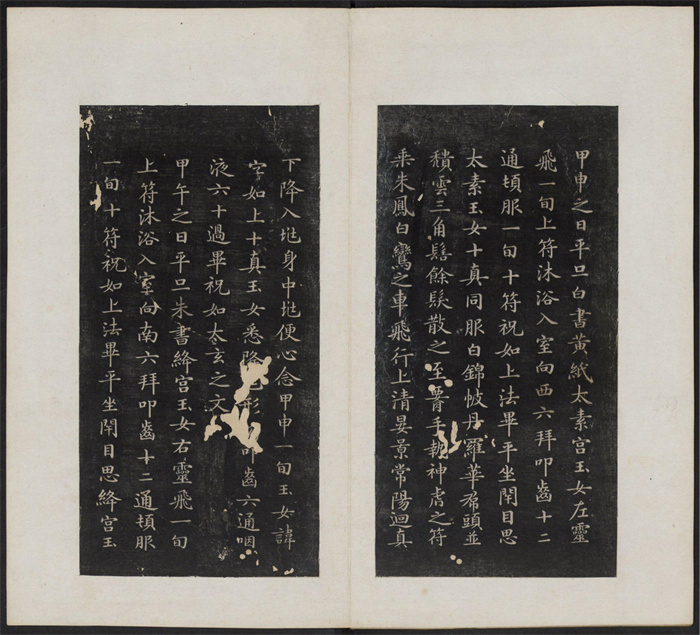 甲申之日平旦白書黃紙太素宮玉女左靈
飛一旬上符沐浴入室向西六拜叩齒十二
通頓服一旬十符祝如上法畢平坐閉目思
太素玉女十真同服白錦帔丹羅華帬頭並
積雲三角髻餘髮散之至腰手執神虎之符
乘朱鳳白鸞之車飛行上清晏景常陽迴真
下降入兆身中兆便心念甲申一旬玉女諱
字如上十真玉女悉降形叩齒六通咽
液六十過畢祝如太玄之文
甲午之日平旦朱書絳宮玉女右靈飛一旬
上符沐浴入室向南六拜叩齒十二通頓服
一旬十符祝如上法畢平坐閉目思絳宮玉